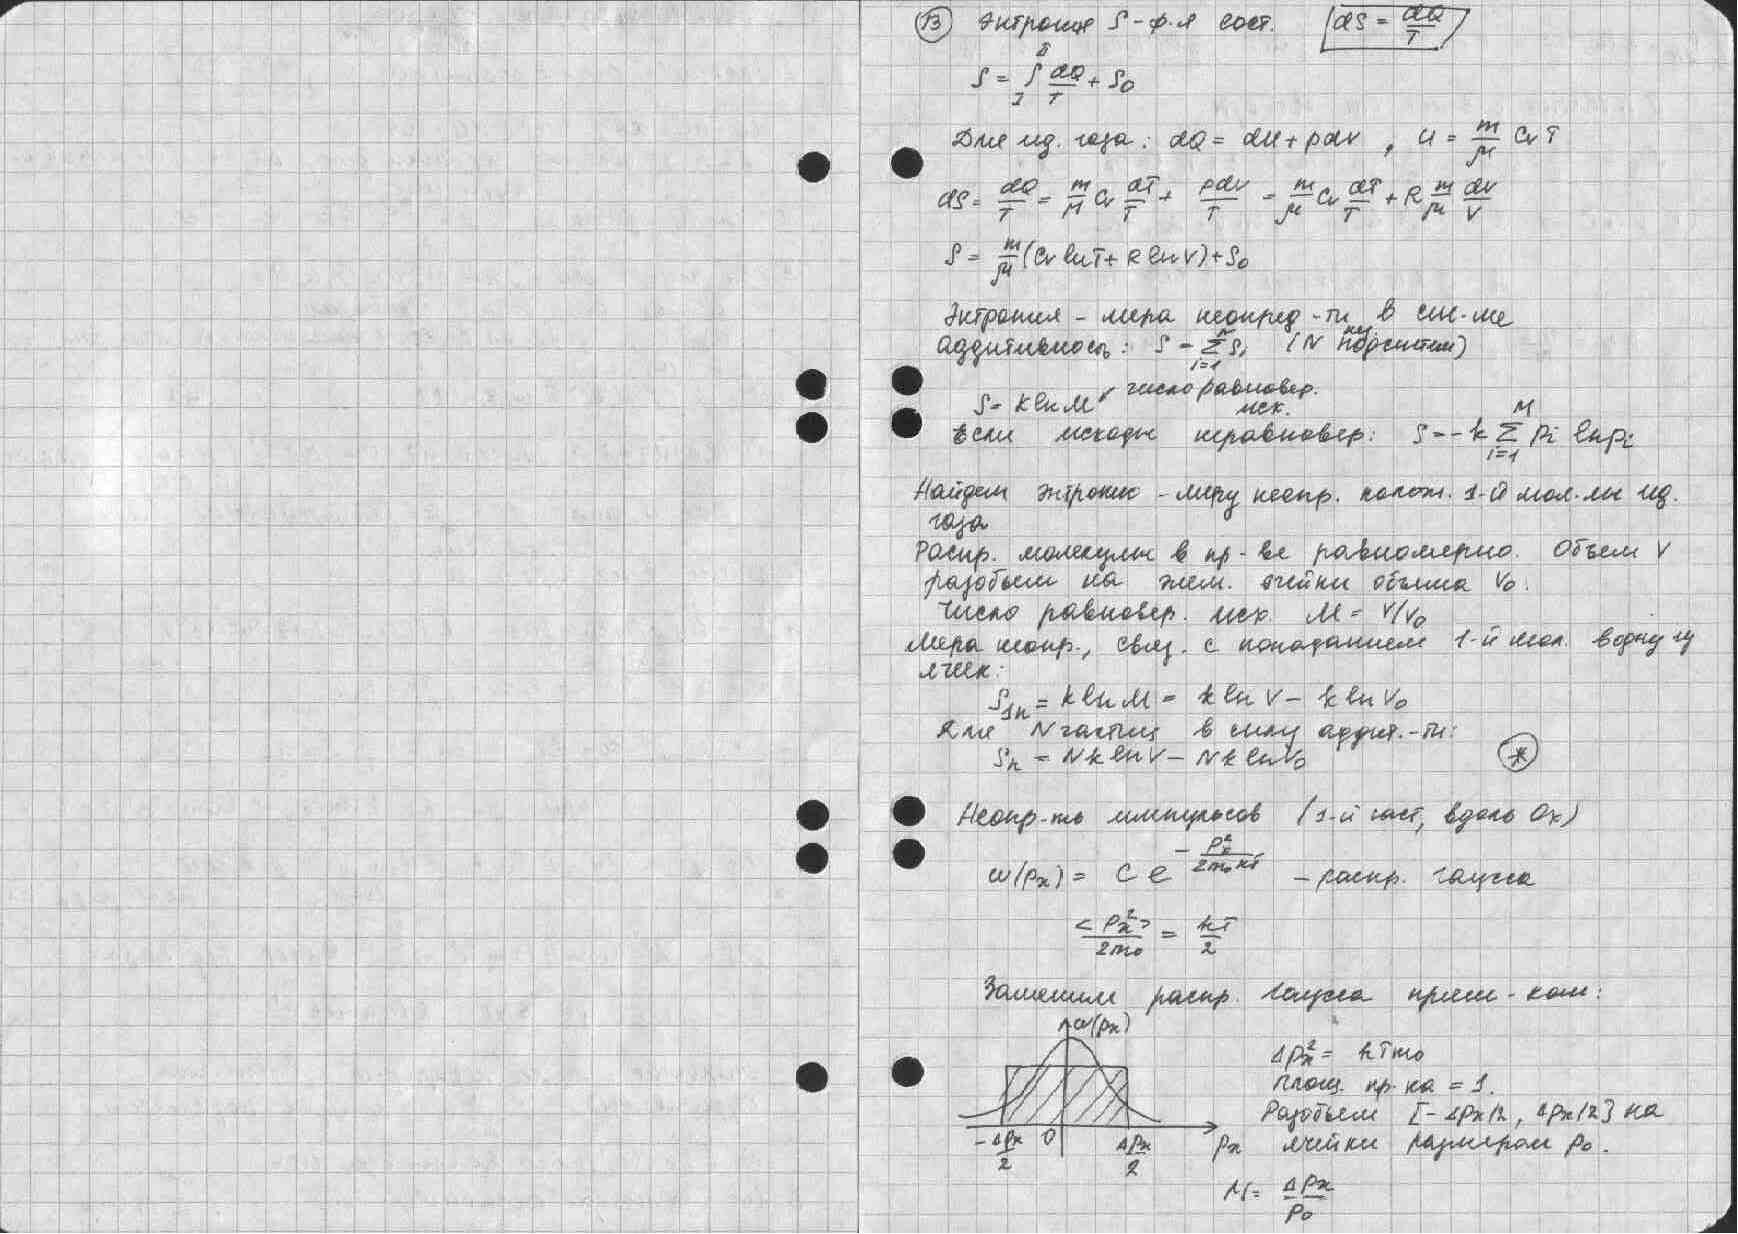 13 Энтропия S - ф-я сост. dS = dQ/T
S = ∫_I^II dQ/T + S₀
Для ид. газа: dQ = dU + pdV, U = m/μ Cv T
dS = dQ/T = m/μ Cv dT/T + pdV/T = m/μ Cv dT/T + R m/μ dV/V
S = m/μ (Cv ln T + R ln V) + S₀
Энтропия - мера неопред-ти в сис-ме
аддитивность: S = Σ_{i=1}^N Sᵢ (N нез. подсистем)
S = k ln M число равновер. исх.
Если исходы неравновер: S = -k Σ_{i=1}^M pᵢ ln pᵢ
Найдем энтропию - меру неопр. полож. 1-й мол-лы ид.
газа
Распр. молекулы в пр-ве равномерно. Объем V
разобьем на элем. ячейки объема V₀.
Число равновер. исх M = V/V₀
Мера неопр., связ. с попаданием 1-й мол. в одну из
ячеек:
S₁ₙ = k ln M = k ln V - k ln V₀
Для N частиц в силу аддит.-ти:
Sₙ = Nk ln V - Nk ln V₀ *
Неопр-ть импульсов (1-й част, вдоль Ox)
ω(pₓ) = C e^{-pₓ²/2m₀kT} - распр. Гаусса
<pₓ²>/2m₀ = kT/2
Заменим распр. Гаусса прям-ком:
ω(pₓ)
Δpₓ² = kTm₀
Площ. пр-ка = 1.
Разобьем [-Δpₓ/2, Δpₓ/2] на
-Δpₓ/2 0 Δpₓ/2 pₓ ячейки размером p₀.
M = Δpₓ/p₀